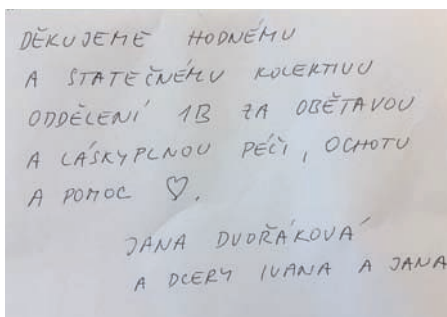 DĚKUJEME HODNÉMU
A STATEČNÉMU KOLEKTIVU
ODDĚLENÍ 1B ZA OBĚTAVOU
A LÁSKYPLNOU PÉČI, OCHOTU
A POMOC ♡.
JANA DVOŘÁKOVÁ
A DCERY IVANA A JANA